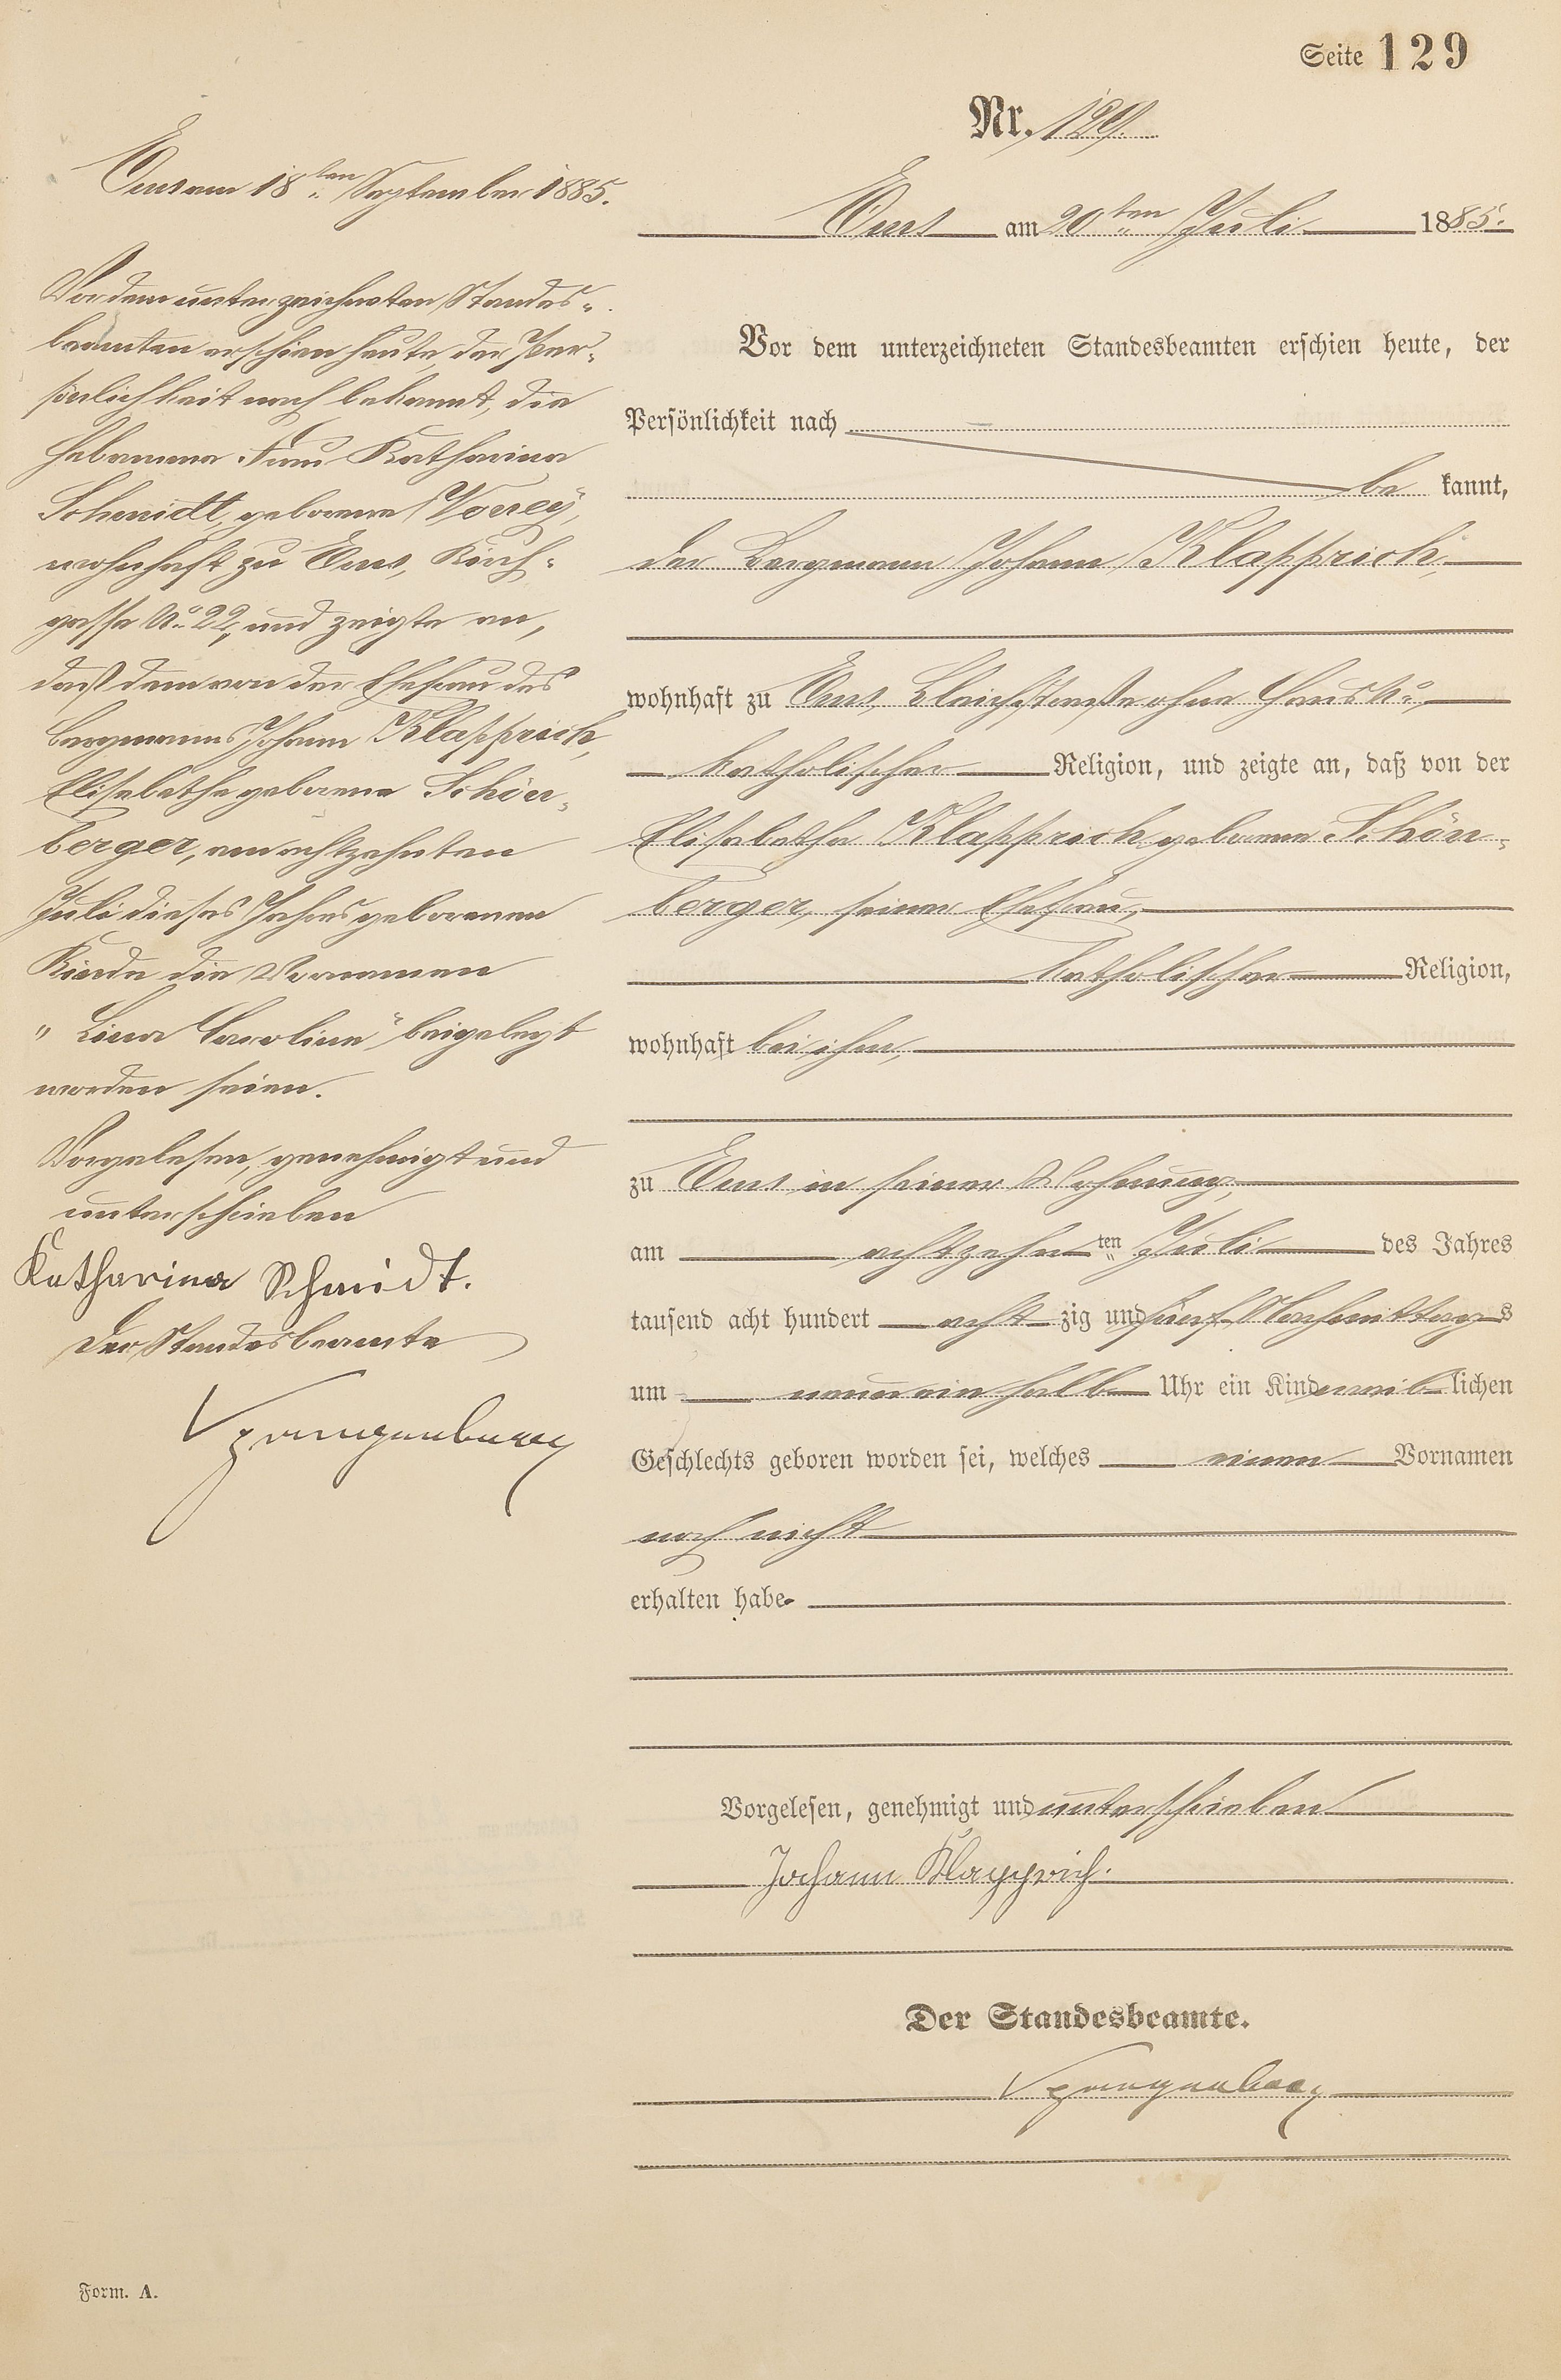 Seite 129
Nr. 129.
Ems am 20ten Juli 1885.
Vor dem unterzeichneten Standesbeamten erschien heute, der
Persönlichkeit nach
be kannt,
der Bergmann Johann Klapprich,
wohnhaft zu Ems, Bleichstraße ohne Haus No,
katholischer Religion, und zeigte an, daß von der
Elisabetha Klapprich geborene Schön-
berger, seiner Ehefrau,
katholischer Religion,
wohnhaft bei ihm,
zu Ems in seiner Wohnung,
am achtzehn ten Juli des Jahres
tausend acht hundert acht zig und fünf Nachmittags
um neun ein halb Uhr ein Kind weib lichen
Geschlechts geboren worden sei, welches einen Vornamen
noch nicht
erhalten habe.
Vorgelesen, genehmigt und unterschrieben
Johann Klapprich.
Der Standesbeamte.
Spangenberg
Ems am 18ten September 1885.
Vor dem unterzeichneten Standes-
beamten erschien heute, der Per-
sönlichkeit nach bekannt, die
Hebamme Frau Katharina
Schmidt, geborene
wohnhaft zu Ems, Kirch-
gasse No 22, und zeigte an,
daß dem von der Ehefrau des
Bergmanns Johann Klapprich,
Elisabetha geborene Schön-
berger, am achtzehnten
Juli dieses Jahres geborenen
Kinde die Vornamen
"Lina Caroline" beigelegt
worden seien.
Vorgelesen, genehmigt und
unterschrieben
Katharina Schmidt.
Der Standesbeamte
Spangenberg
Form. A.